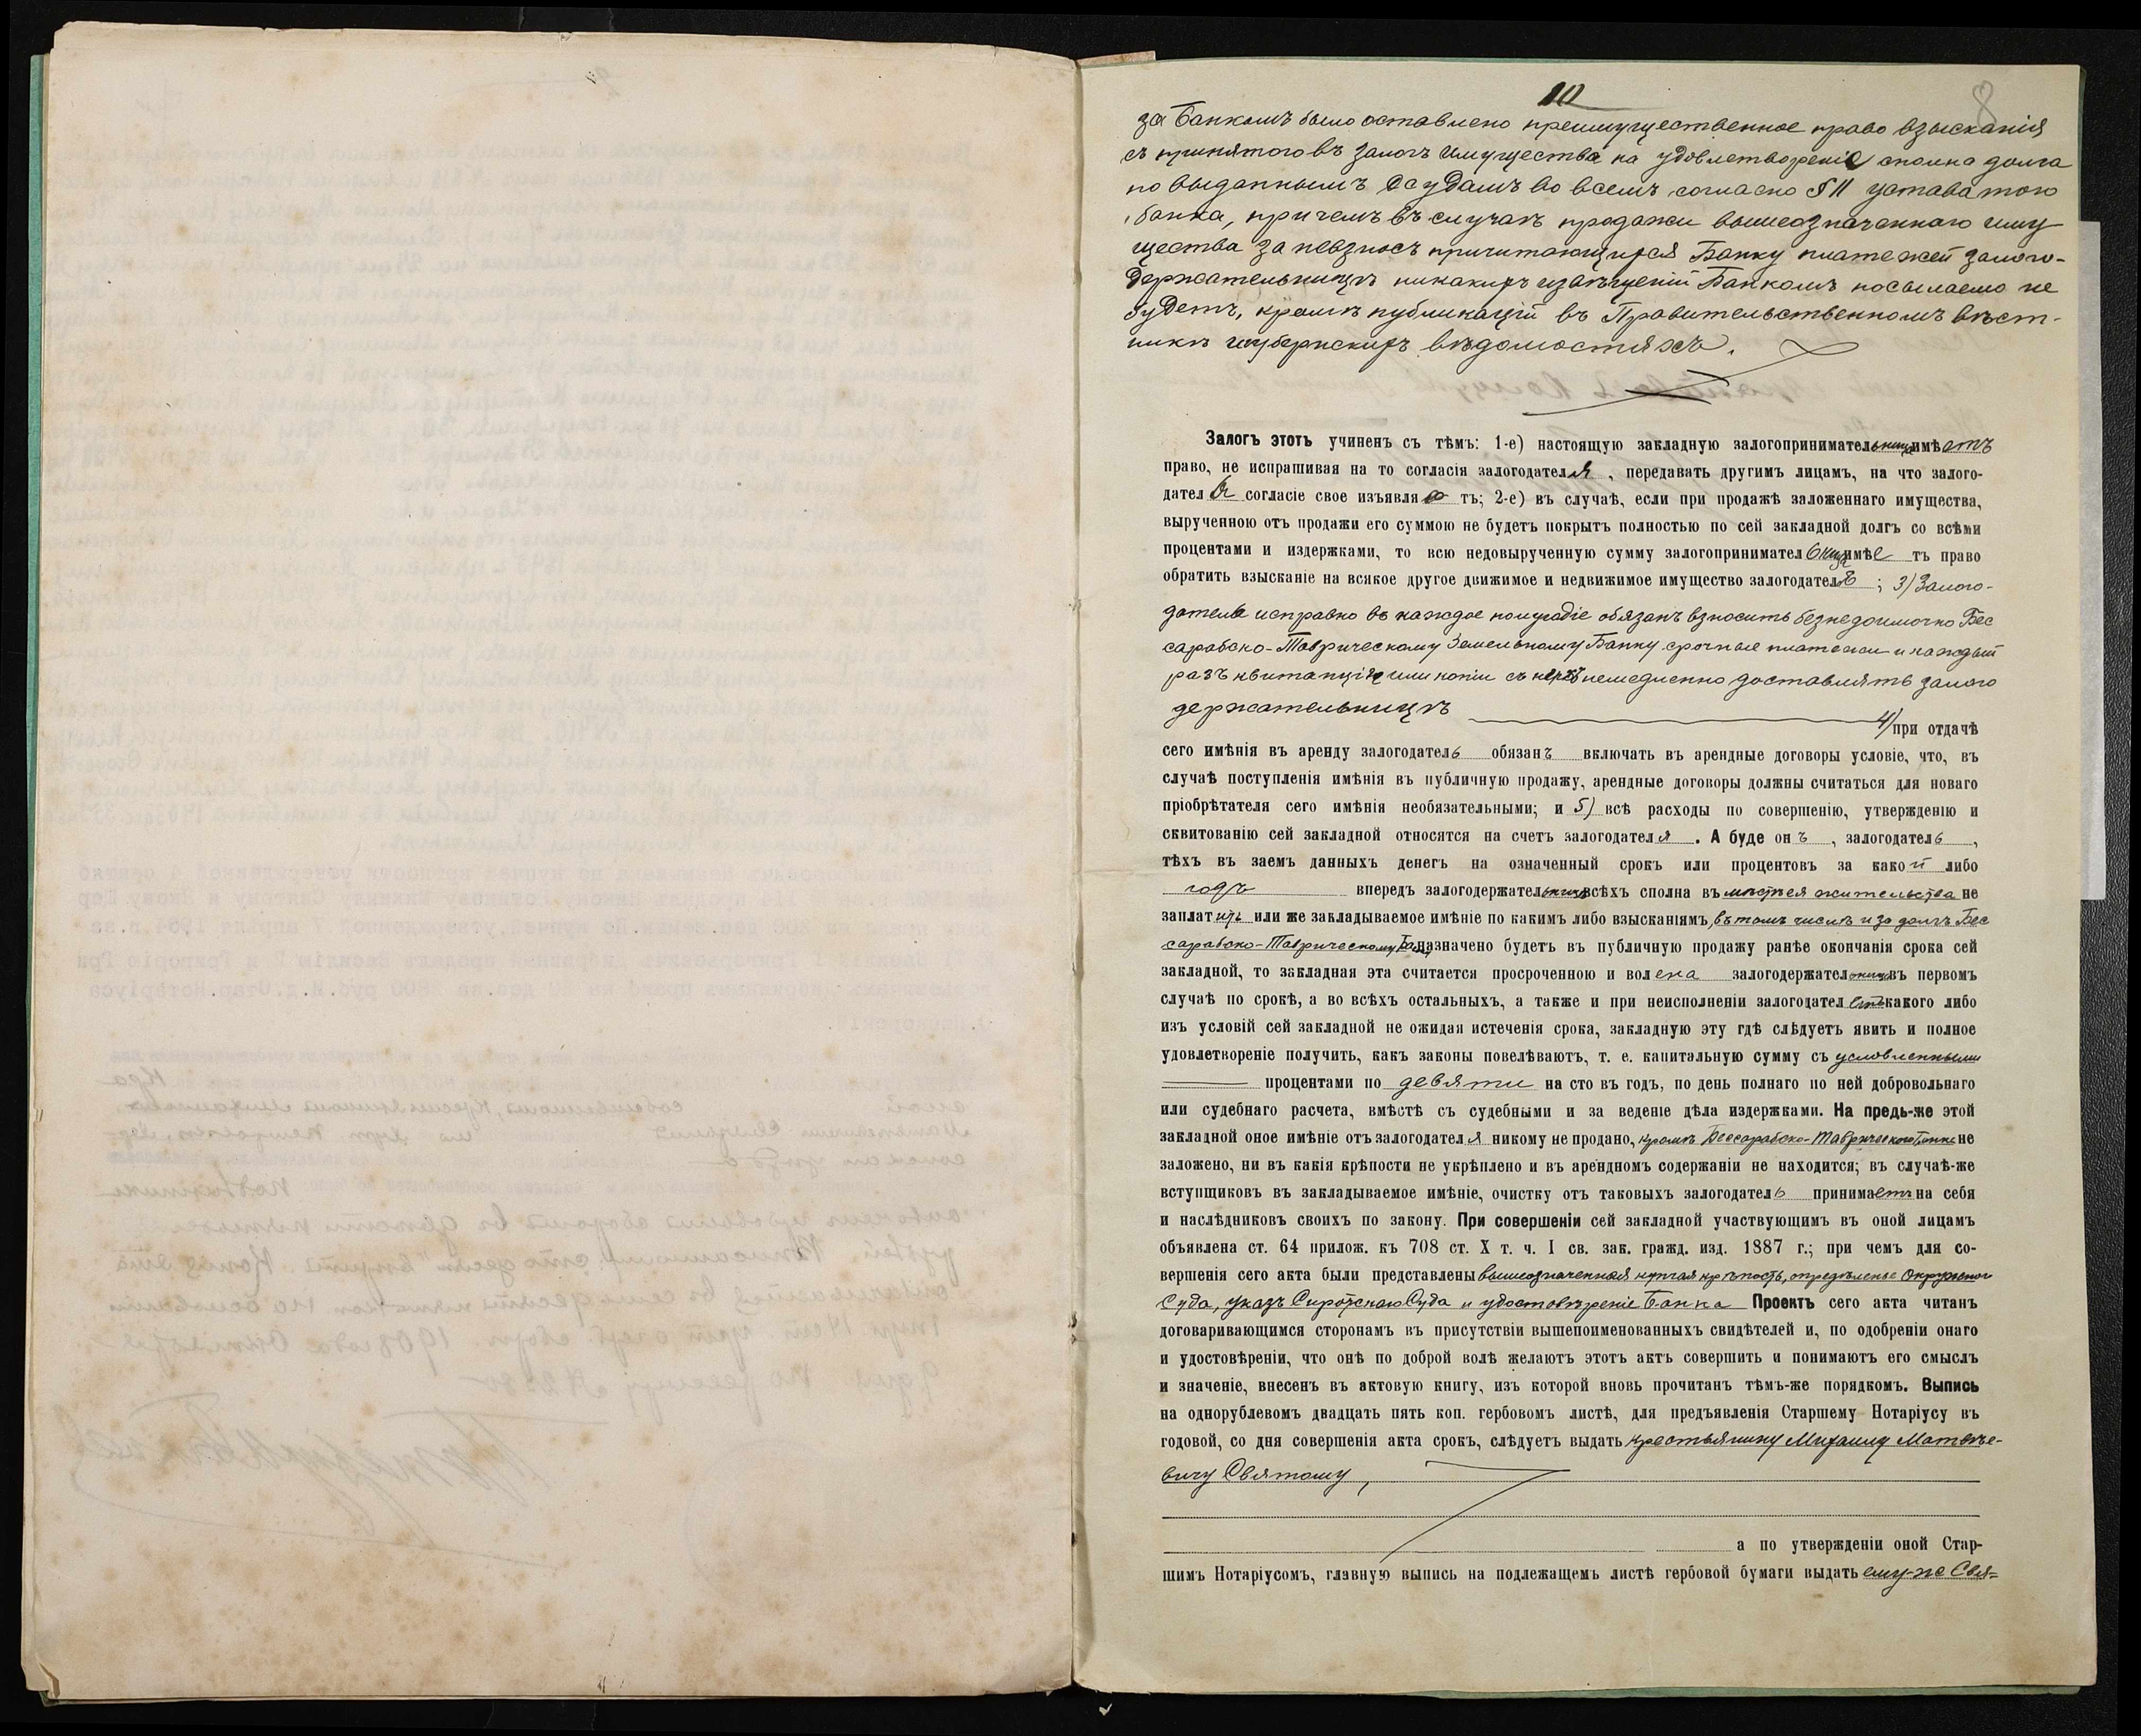 10
8
за Банкомъ было оставлено преимущественное право взысканія
съ принятого въ залогъ имущества на удовлетвореніе сполна долга
по выданнымъ ссудамъ во всемъ согласно § 11 устава того
банка, причемъ въ случаѣ продажи вышеозначеннаго иму
щества за невзносъ причитающихся Банку платежей залого-
держательницѣ никакихъ извѣщеній Банкомъ посылаемо не
будетъ, кромѣ публикацій въ Правительственномъ вѣст-
никѣ губернскихъ вѣдомостяхъ.
Залогъ этотъ учиненъ съ тѣмъ: 1-е) настоящую закладную залогопринимательница имѣетъ
право, не испрашивая на то согласія залогодателя, передавать другимъ лицамъ, на что залого-
дател ь согласіе свое изъявляе тъ; 2-е) въ случаѣ, если при продажѣ заложеннаго имущества,
вырученною отъ продажи его суммою не будетъ покрытъ полностью по сей закладной долгъ со всѣми
процентами и издержками, то всю недовырученную сумму залогопринимательница имѣе тъ право
обратить взысканіе на всякое другое движимое и недвижимое имущество залогодателя ; 3) Залого-
датель исправно въ каждое полугодіе обязанъ взносить безнедоимочно Бес
сарабско-Таврическому Земельному Банку срочные платежи и каждый
разъ квитанціи или копіи съ нихъ немедленно доставлять залого
держательницѣ 4) при отдачѣ
сего имѣнія въ аренду залогодатель обязанъ включать въ арендные договоры условіе, что, въ
случаѣ поступленія имѣнія въ публичную продажу, арендные договоры должны считаться для новаго
пріобрѣтателя сего имѣнія необязательными; и 5) всѣ расходы по совершенію, утвержденію и
сквитованію сей закладной относятся на счетъ залогодателя . А буде он ъ , залогодатель ,
тѣхъ въ заемъ данныхъ денегъ на означенный срокъ или процентовъ за какой либо
годъ впередъ залогодержательницѣ всѣхъ сполна въ мѣстѣ ея жительства не
заплатитъ или же закладываемое имѣніе по какимъ либо взысканіямъ, въ томъ числѣ и за долгъ Бес
сарабско-Таврическому Банку назначено будетъ въ публичную продажу ранѣе окончанія срока сей
закладной, то закладная эта считается просроченною и вол ена залогодержательница въ первомъ
случаѣ по срокѣ, а во всѣхъ остальныхъ, а также и при неисполненіи залогодателемъ какого либо
изъ условій сей закладной не ожидая истеченія срока, закладную эту гдѣ слѣдуетъ явить и полное
удовлетвореніе получить, какъ законы повелѣваютъ, т. е. капитальную сумму съ условленными
процентами по девяти на сто въ годъ, по день полнаго по ней добровольнаго
или судебнаго расчета, вмѣстѣ съ судебными и за веденіе дѣла издержками. На предь-же этой
закладной оное имѣніе отъ залогодателя никому не продано, кромѣ Бессарабско-Таврическаго Банка не
заложено, ни въ какія крѣпости не укрѣплено и въ арендномъ содержаніи не находится; въ случаѣ-же
вступщиковъ въ закладываемое имѣніе, очистку отъ таковыхъ залогодатель принимаетъ на себя
и наслѣдниковъ своихъ по закону. При совершеніи сей закладной участвующимъ въ оной лицамъ
объявлена ст. 64 прилож. къ 708 ст. X т. ч. I св. зак. гражд. изд. 1887 г.; при чемъ для со-
вершенія сего акта были представлены вышеозначенная купчая крѣпость, опредѣленіе Окружного
Суда, указъ Сиротскаго Суда и удостовѣреніе Банка Проектъ сего акта читанъ
договаривающимся сторонамъ въ присутствіи вышепоименованныхъ свидѣтелей и, по одобреніи онаго
и удостовѣреніи, что онѣ по доброй волѣ желаютъ этотъ актъ совершить и понимаютъ его смыслъ
и значеніе, внесенъ въ актовую книгу, изъ которой вновь прочитанъ тѣмъ-же порядкомъ. Выпись
на однорублевомъ двадцать пять коп. гербовомъ листѣ, для предъявленія Старшему Нотаріусу въ
годовой, со дня совершенія акта срокъ, слѣдуетъ выдать крестьянину Михаилу Матвѣе-
вичу Святому,
а по утвержденіи оной Стар-
шимъ Нотаріусомъ, главную выпись на подлежащемъ листѣ гербовой бумаги выдать ему-же Свя=